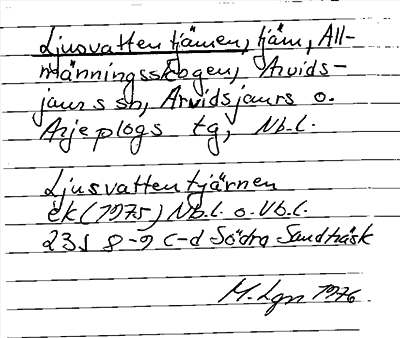 Ljusvattentjärnen, tjärn, All-
männingsskogen, Arvids-
jaurs sn, Arvidsjaurs o.
Arjeplogs tg, Nb.l.
Ljusvattentjärnen
ek (1975) Nb.l. o. Vb.l.
23J 8-9 c-d Södra Sandträsk
M. Lgn 1976.